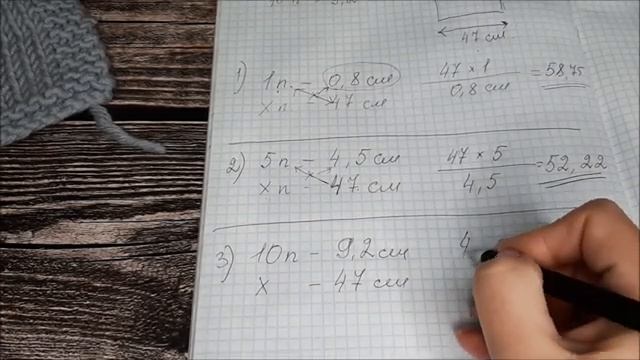 47 см
1) 1п. – 0,8 см
47 × 1 / 0,8 см = 58,75
х п – 47 см
2) 5п – 4,5 см
47 × 5 / 4,5 = 52,22
х п – 47 см
3) 10п – 9,2 см
4
х – 47 см